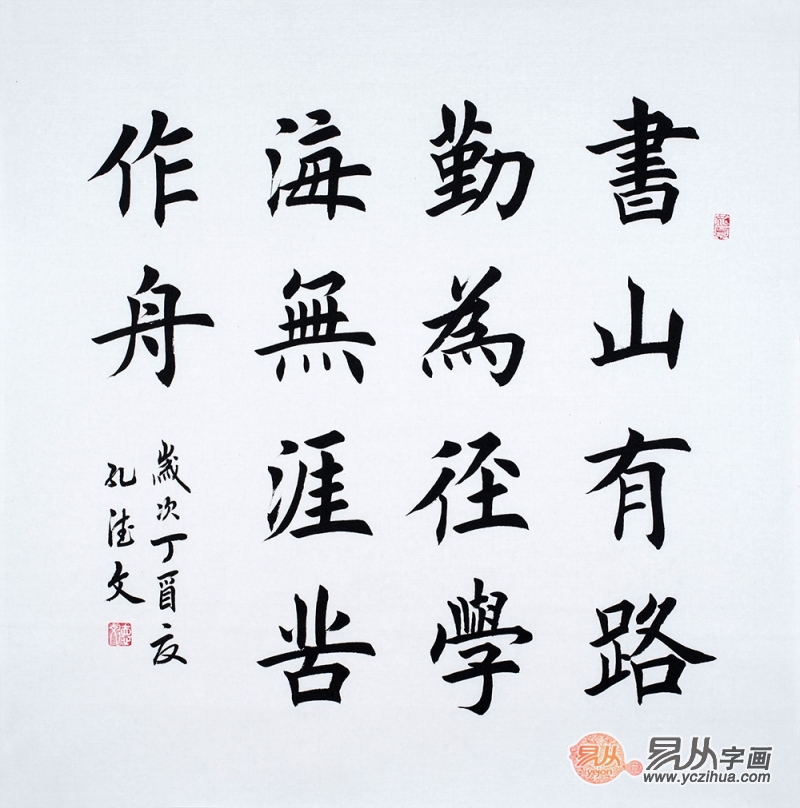 書山有路
勤為徑學
海無涯苦
作舟
歲次丁酉夏
孔德文
易从字画
www.yczihua.com
易从
yejon